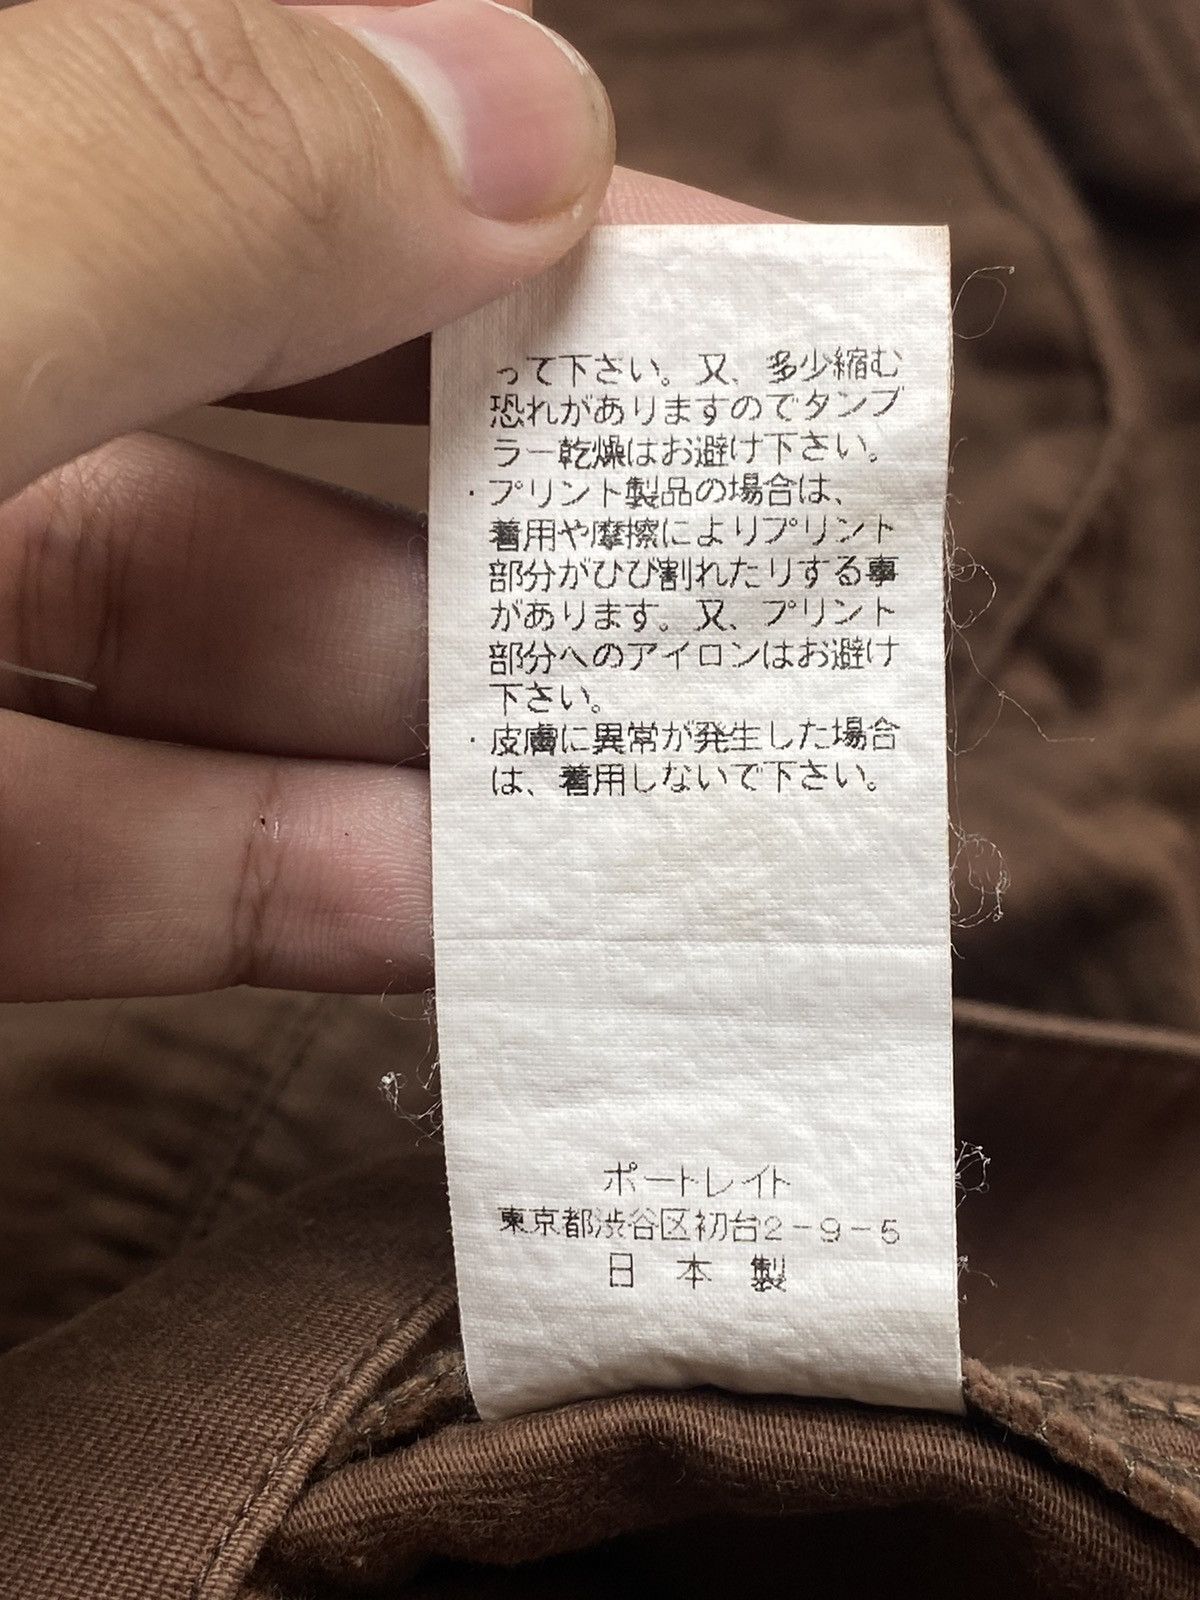 って下さい。又、多少縮む
恐れがありますのでタンブ
ラー乾燥はお避け下さい。
・プリント製品の場合は、
着用や摩擦によりプリント
部分がひび割れたりする事
があります。又、プリント
部分へのアイロンはお避け
下さい。
・皮膚に異常が発生した場合
は、着用しないで下さい。
ポートレイト
東京都渋谷区初台2-9-5
日本製